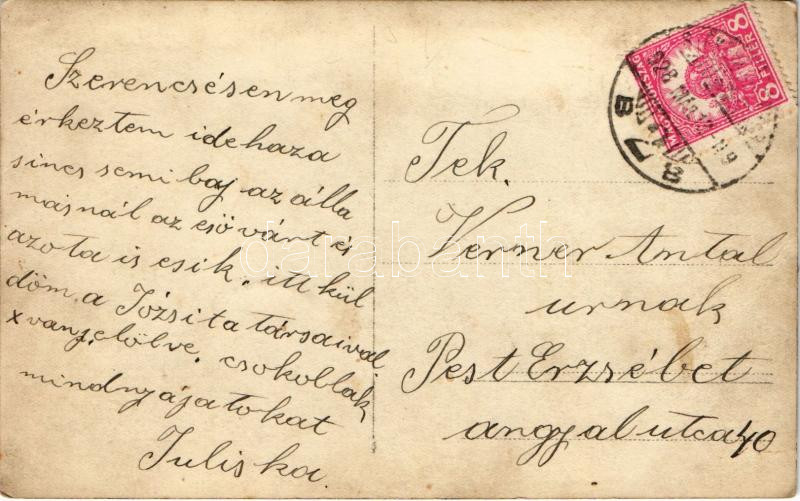 Szerencsésen meg
érkeztem idehaza
sincs semi baj az álla
másnál az eső várt és
azota is esik. itt kül
döm a Józsita társaival.
x vanjelölve. csokollak
mindnyájatokat
Juliska.
Tek.
Verner Antal
urnak
Pest Erzsébet
angyal utca 40
8 FILLÉR 8
MAGYARORSZÁG
87
B
928
darabanth